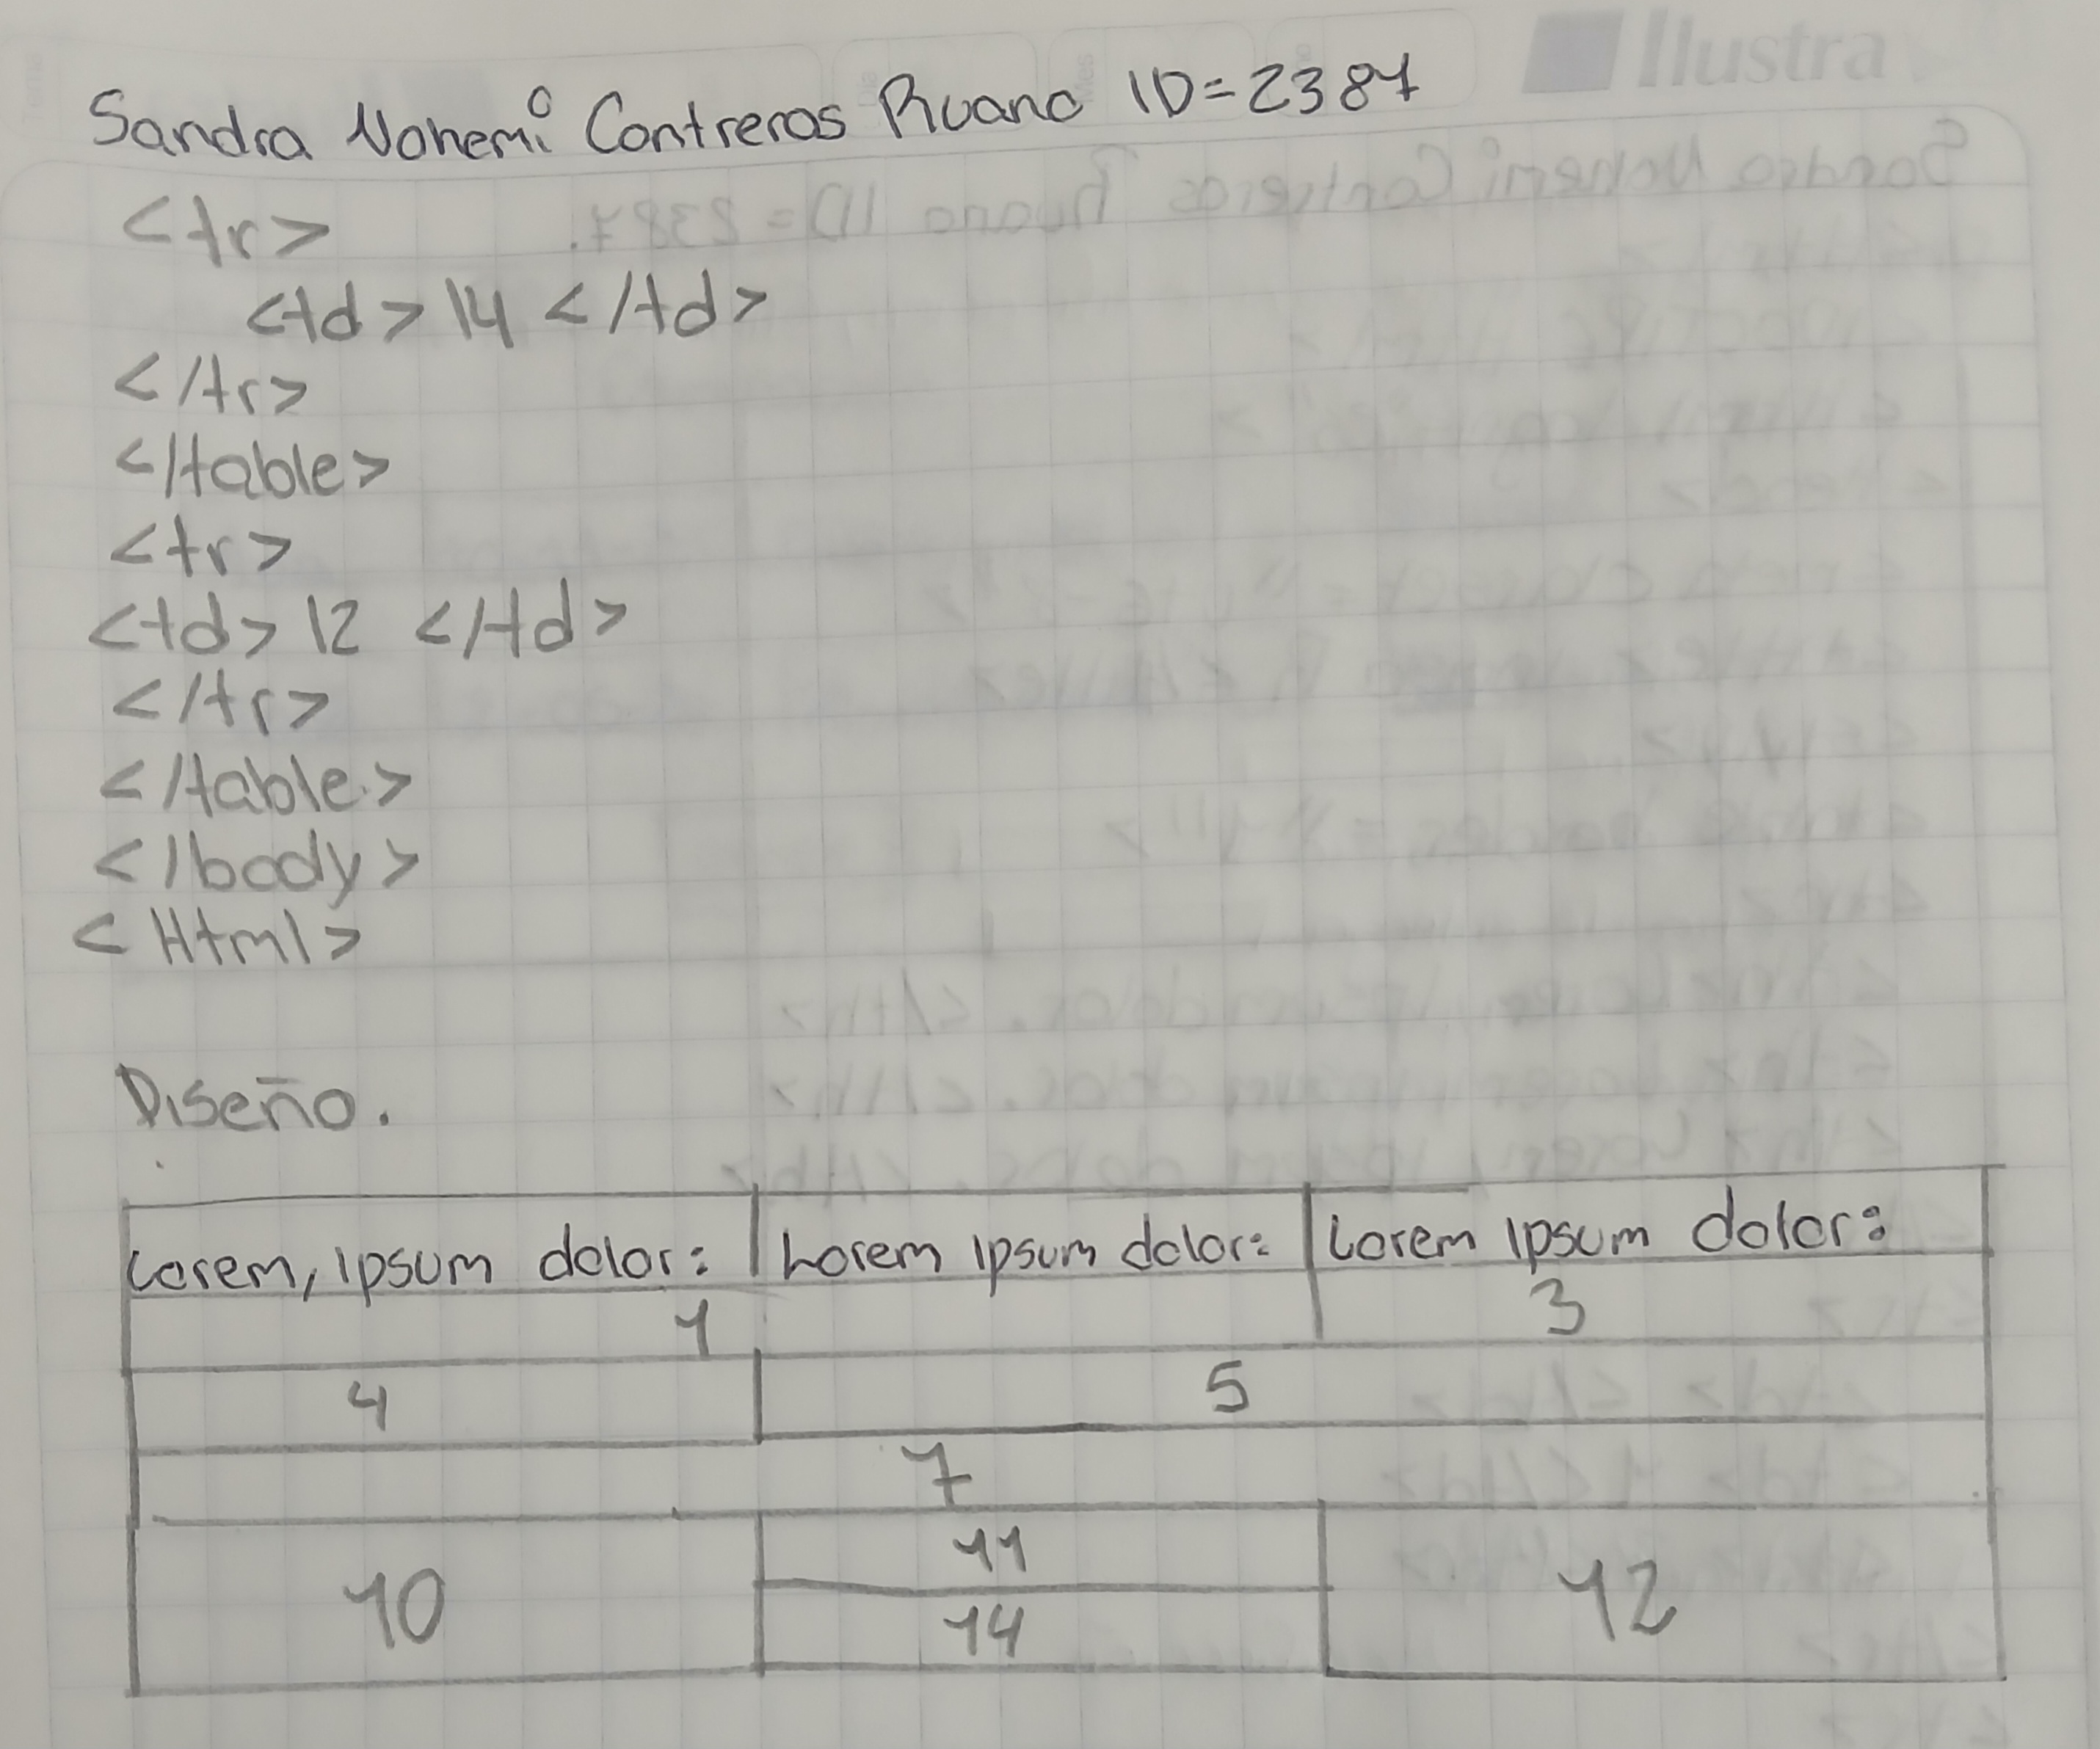 Ilustra
Sandra Nohemi Contreras Ruano ID=2387
<tr>
<td> 14 </td>
</tr>
</table>
<tr>
<td> 12 </td>
</tr>
</table>
</body>
<Html>
Diseño.
Lorem, ipsum dolor: Lorem ipsum dolor: Lorem ipsum dolor:
1 3
4 5
7
10 11 12
14